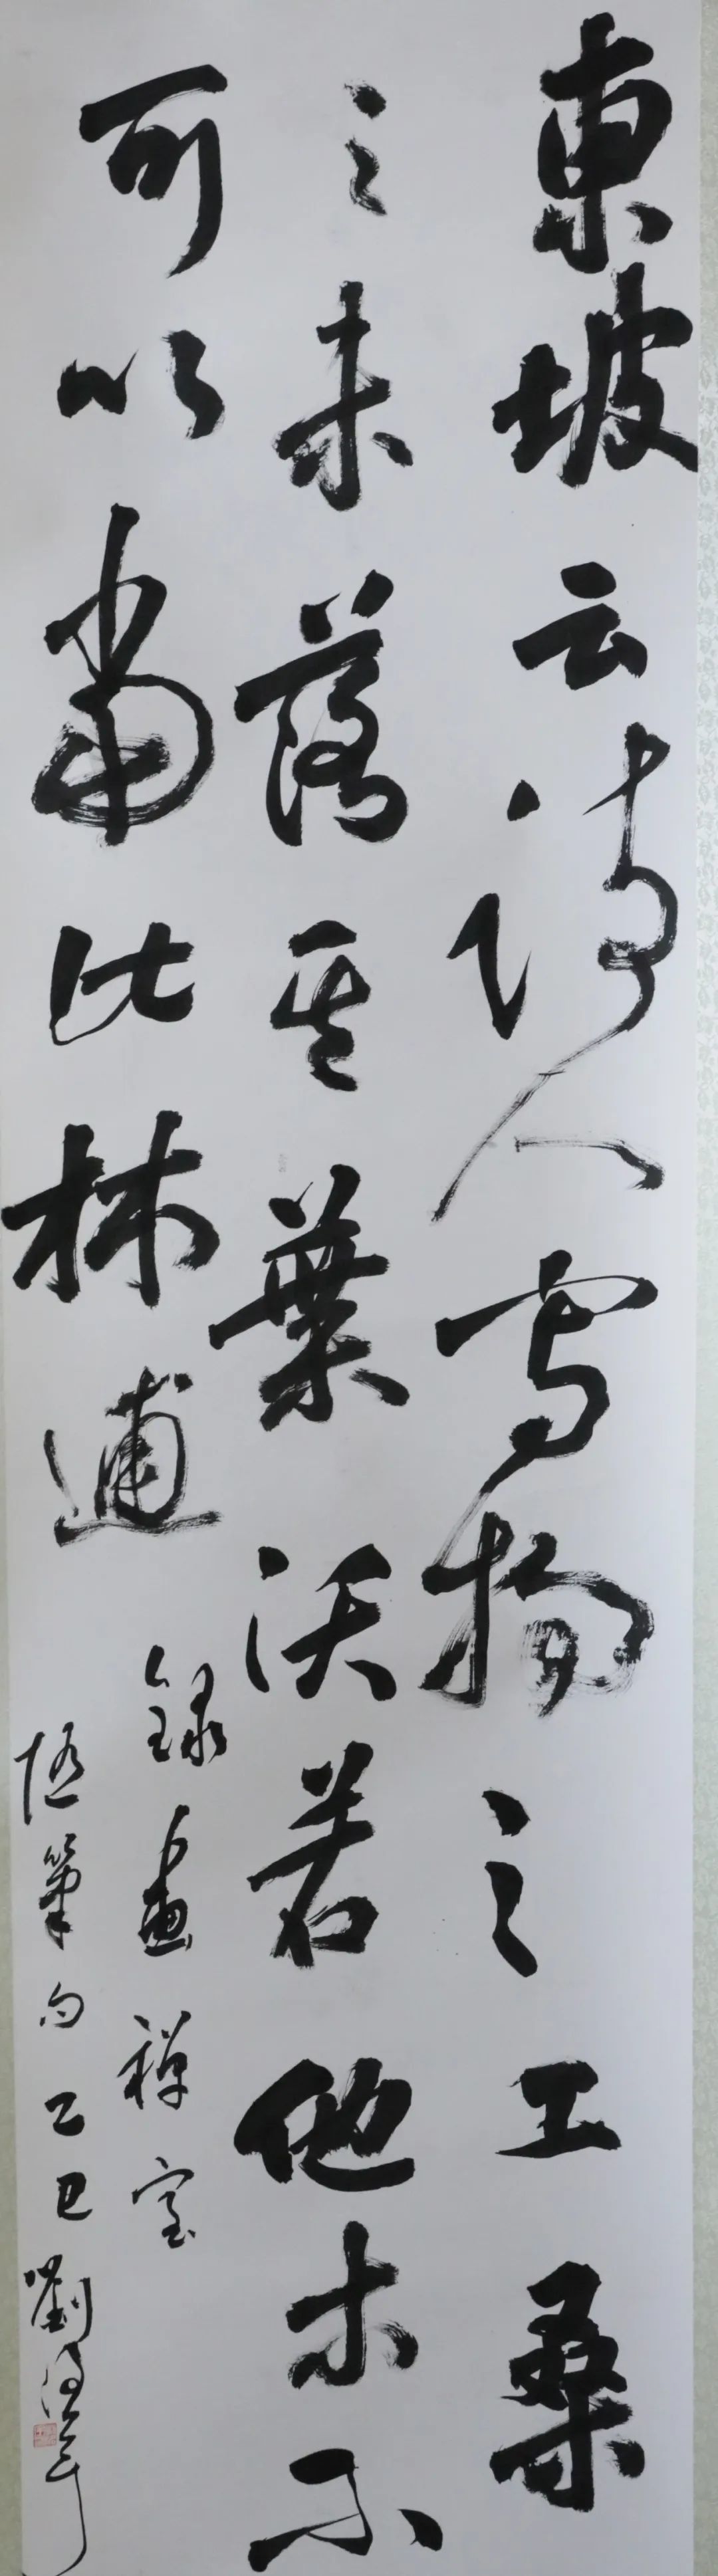 東坡云詩人寫物之工桑
之未落其葉沃若他木不
可以當此林逋
録畫禪室
随筆句乙巳劉